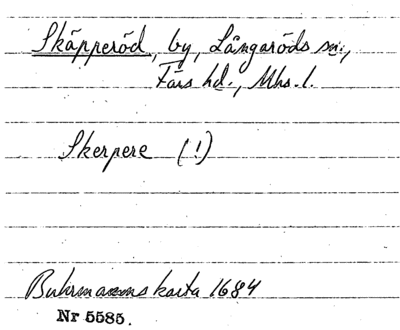 Skäpperöd, by, Långaröds sn.,
Färs hd., Mhs. l.
Skerpere (!)
Buhrmanns karta 1684
Nr 5585.